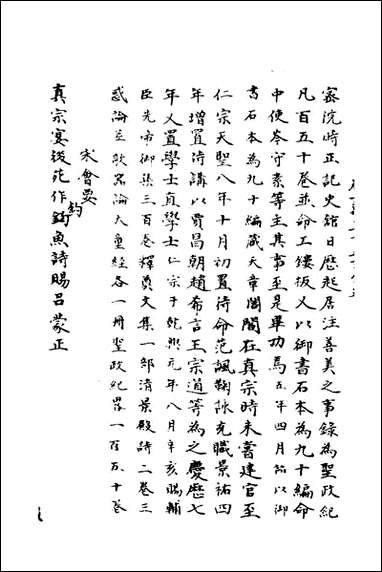 密院時正記史館日歷起居注善美之事錄為聖政紀
凡百五十卷並命工鏤板又以御書石本為九十編命
中使岑守素等主其事至是畢功焉五年四月詔以御
書石本為九十編藏天章閣閣在真宗時未嘗建官至
仁宗天聖八年十月初置待命范諷鞠詠充職景祐四
年增置侍講以賈昌朝趙希言王宗道等為之慶歷七
年又置學士直學士仁宗于乾興元年八月辛亥賜輔
臣先帝御集三百卷釋典文集一部清景殿詩二卷三
惑論並欹器論大重經各一冊聖政紀畧一百五十卷
宋會要
釣
真宗宴後苑作鈎魚詩賜呂蒙正